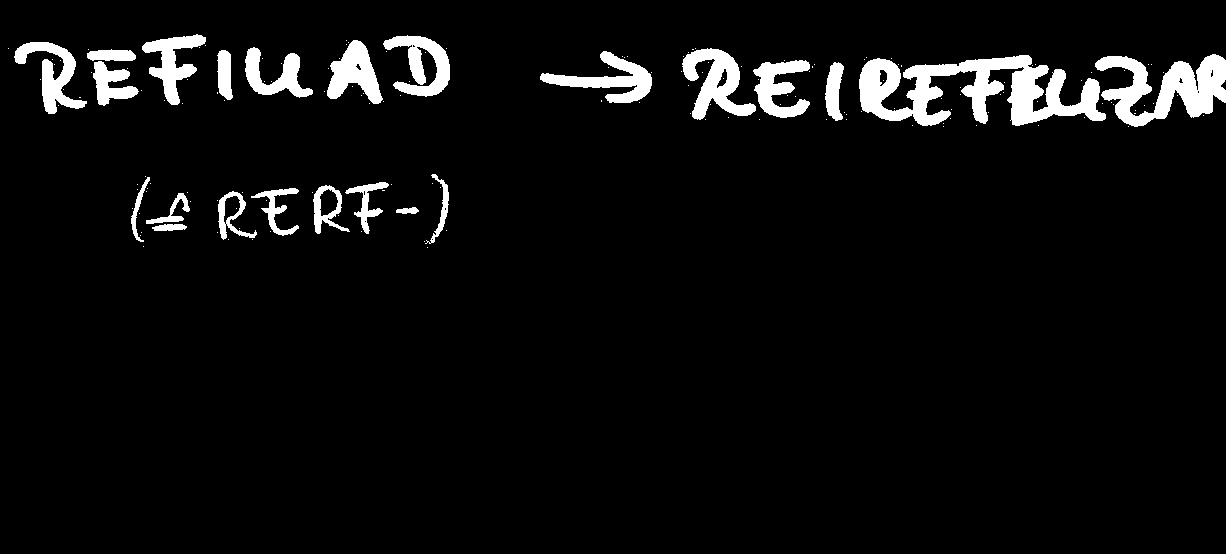 REFIUAD → REIREFEUZAR
(≙ RERF-)